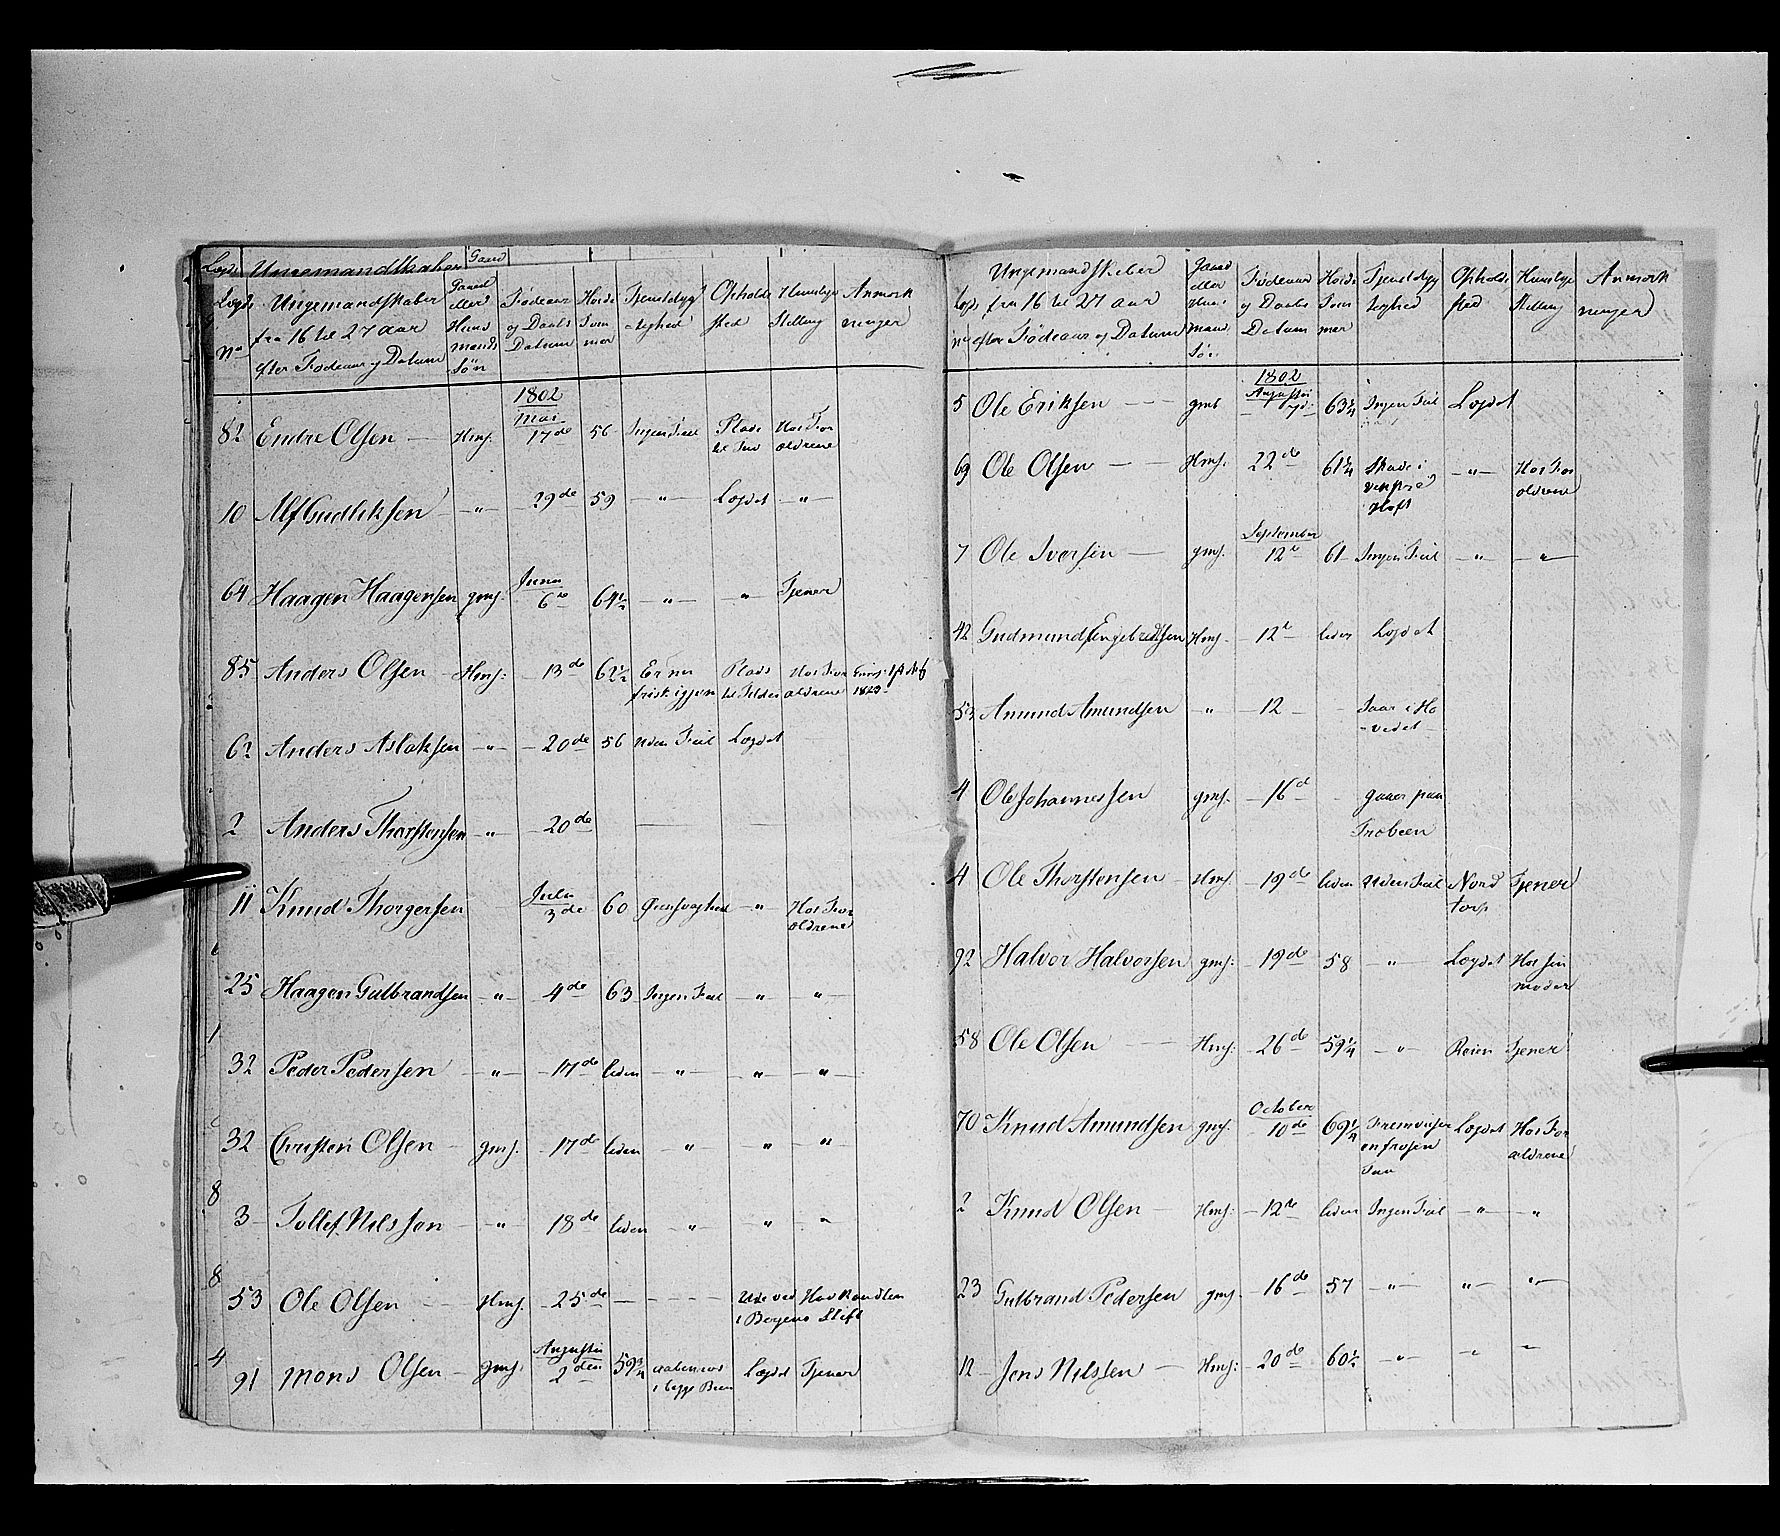 Lægds Ungemandskaber Gaard
Lægds No Ungemandskaber fra 16 til 27 aar efter Fødeaar og Datum Gaard eller Huus mands Søn Fødeaar og Daabs Datum Høide Tom mer Tjenstdyg tighed Opholds sted Huuslige Stilling Anmærk ninger
1802
Mai
82 Endre Olsen Hmſ. 17de 56 Ingen Feil Plads Hos For
ældrene
10 Alf Gudliksen " 29de 59 " Lægdet "
Juni
64 Haagen Haagensen gmſ. 6te 64½ " " Tjener
85 Anders Olsen Hmſ: 13de 62½ Er nu Plads Hos For
frisk igjen ældrene 1823
62 Anders Aslaksen " 20de 56 Uden Feil Lægdet
2 Anders Thorstensen " 20de
Juli
11 Knud Thorgersen 3de 60 " Hos For
ældrene
25 Haagen Gulbrandsen " 4de 63 Ingen Feil " "
32 Peder Pedersen " 17de liden " " "
32 Christen Olsen gmſ. 17de liden " " "
8
3 Tollef Nilssøn " 18de liden " " "
8
53 Ole Olsen Hmſ. 25de Ude ved Handelen
i Bergens Stift
Augusti
4
91 Mons Olsen gmſ. 2den 59¾ Lægdet Tjener
i begge Been
Lægds No Ungemandskaber fra 16 til 27 aar efter Fødeaar og Datum Gaard eller Huus mands Søn Fødeaar og Daabs Datum Høide Tom mer Tjenstdyg tighed Opholds sted Huuslige Stilling Anmærk ninger
1802
Augusti
5 Ole Eriksen gmſ 7de 63¼ Ingen Feil Lægdet
69 Ole Olsen Hmſ. 22de 61¼ Skade i " Hos For
venstre ældrene
Hoft
September
7 Ole Iversen gmſ. 12te 61 Ingen Feil " "
42 Gudmund Engebretsen Hmſ. 12te liden Lægdet
53 Amund Amundsen " 12 Saar i Ho
vedet
4 Ole Johannessen gmſ. 16de gaaer paa
Træbeen
4 Ole Thorstensen Hmſ. 19de liden Uden Feil Nord Tjener
torp
92 Halvor Halvorsen gmſ: 19de 58 " Lægdet Hos sin
moder
58 Ole Olsen Hmſ: 26de 59¼ " Reien Tjener
October
70 Knud Amundsen gmſ. 10de 69¼ Fremviser Lægdet Hos For
en frosen ældrene
Taa
2 Knud Olsen Hmſ: 12te liden Ingen Feil " "
23 Gulbrand Pedersen gmſ 16de 57 " " "
12 Jens Nilssen Hmſ: 20de 60½ " " "